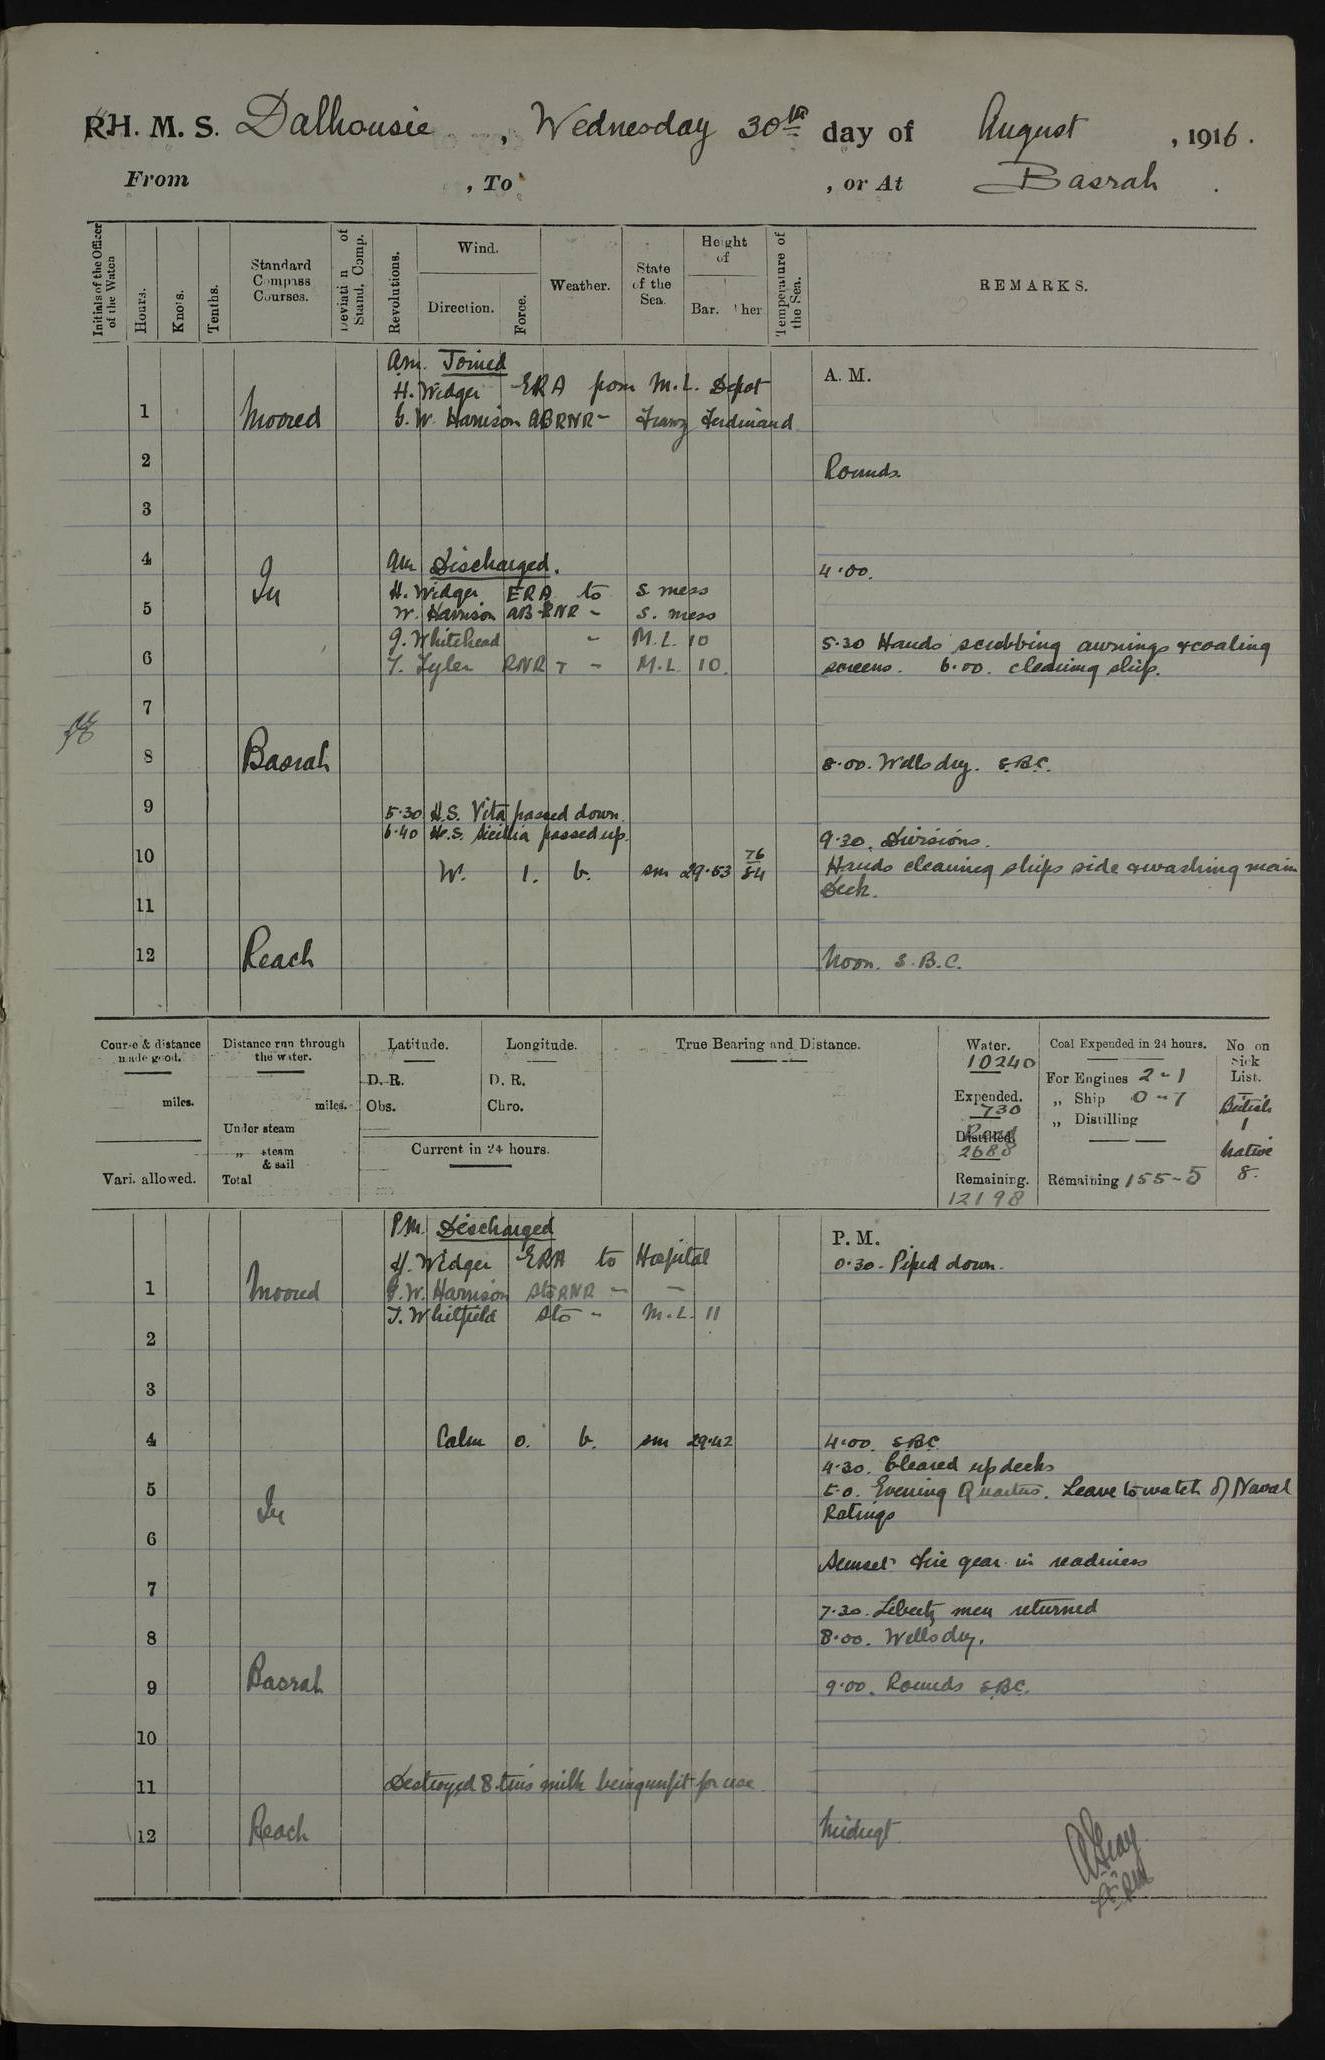 R.H. M. S. Dalhousie, Wednesday 30th day of August, 1916.
From , To , or At Basrah.
Initials of the Officer of the Watch
Hours.
Knots.
Tenths.
Standard Compass Courses.
Deviation of Stand. Comp.
Revolutions.
Wind.
Direction.
Force.
Weather.
State of the Sea.
Height of
Bar. Ther
Temperature of the Sea.
REMARKS.
A. M.
am. Joined
H. Widger ERA from M.L. Depot
1 Moored G. W. Harrison AB RNR - Franz Ferdinand
2 Rounds.
3
4 am Discharged. 4.00.
In H. Widger ERA to S. mess
5 W. Harrison AB RNR - S. mess
J. Whitehead - M.L. 10 5.30 Hands scrubbing awnings & coaling
6 T. Tyler RNR - - M.L. 10. screens. 6.00. cleaning ship.
7
8 Basrah 8.00. Wells dry. S.B.C.
9 5.30 H.S. Vita passed down.
6.40 H.S. Sicilia passed up. 9.30. Divisions.
10 W. 1. b. sm 29.53 76 84 Hands cleaning ships side & washing main
Deck.
11
12 Reach Noon. S.B.C.
Course & distance made good.
miles.
Vari. allowed.
Distance run through the water.
miles.
Under steam
„ steam & sail
Total
Latitude.
D. R.
Obs.
Longitude.
D. R.
Chro.
Current in 24 hours.
True Bearing and Distance.
Water.
10240
Expended.
730
Distilled.
Recd
2688
Remaining.
12198
Coal Expended in 24 hours.
For Engines 2-1
„ Ship 0-7
„ Distilling
Remaining 155-5
No on Sick List.
British
1
Native
8.
P. M.
PM. Discharged
H. Widger ERA to Hospital 0.30. Piped down.
1 Moored G. W. Harrison Sto RNR - -
T. Whitfield Sto - M.L. 11
2
3
4 Calm 0. b. sm 29.42 4.00. S.B.C.
4.30. Cleared up decks
5 5.0. Evening Quarters. Leave to watch of Naval
In Ratings
6
Sunset Fire gear in readiness
7
7.30. Liberty men returned
8 8.00. Wells dry.
9 Basrah 9.00. Rounds S.B.C.
10
11 Destroyed 8 tins milk being unfit for use.
12 Reach Midngt.
A Gray